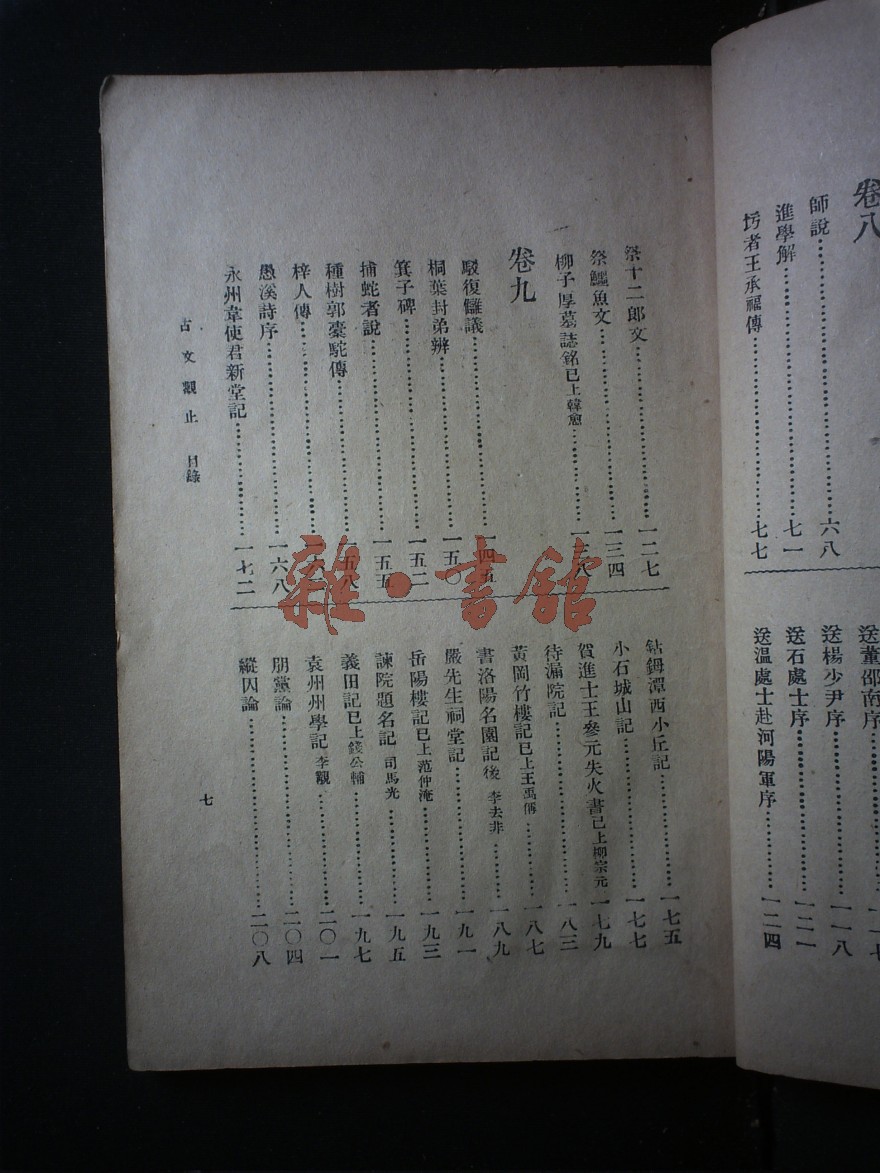 卷八
師說……六八
進學解……七一
圬者王承福傳……七七
送董邵南序
送楊少尹序……一一八
送石處士序……一二一
送溫處士赴河陽軍序……一二四
祭十二郎文……一二七
祭鱷魚文……一三四
柳子厚墓誌銘已上韓愈……一三八
卷九
駁復讎議……一四五
桐葉封弟辨……一五〇
箕子碑……一五二
捕蛇者說……一五五
種樹郭橐駝傳……一五八
梓人傳……
愚溪詩序……一六八
永州韋使君新堂記……一七二
鈷鉧潭西小丘記……一七五
小石城山記……一七七
賀進士王參元失火書已上柳宗元……一七九
待漏院記……一八三
黃岡竹樓記已上王禹偁……一八七
書洛陽名園記後 李去非……一八九
嚴先生祠堂記……一九一
岳陽樓記已上范仲淹……一九三
諫院題名記 司馬光……一九五
義田記已上錢公輔……一九七
袁州州學記 李覯……二〇一
朋黨論……二〇四
縱囚論……二〇八
古文觀止 目錄
七
雜·書館